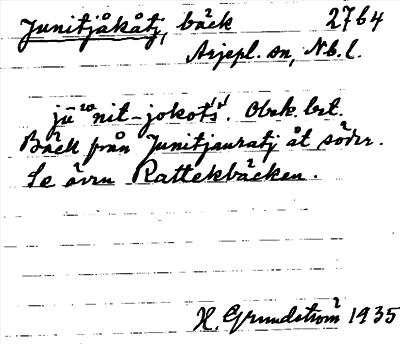 Junitjåkåtj, bäck 2764
Arjepl. sn, Nb. l.
jūnit-jokots. Obek. bet.
Bäck från Junitjauratj åt söder.
Se även Rattekbäcken.
H. Grundström 1935